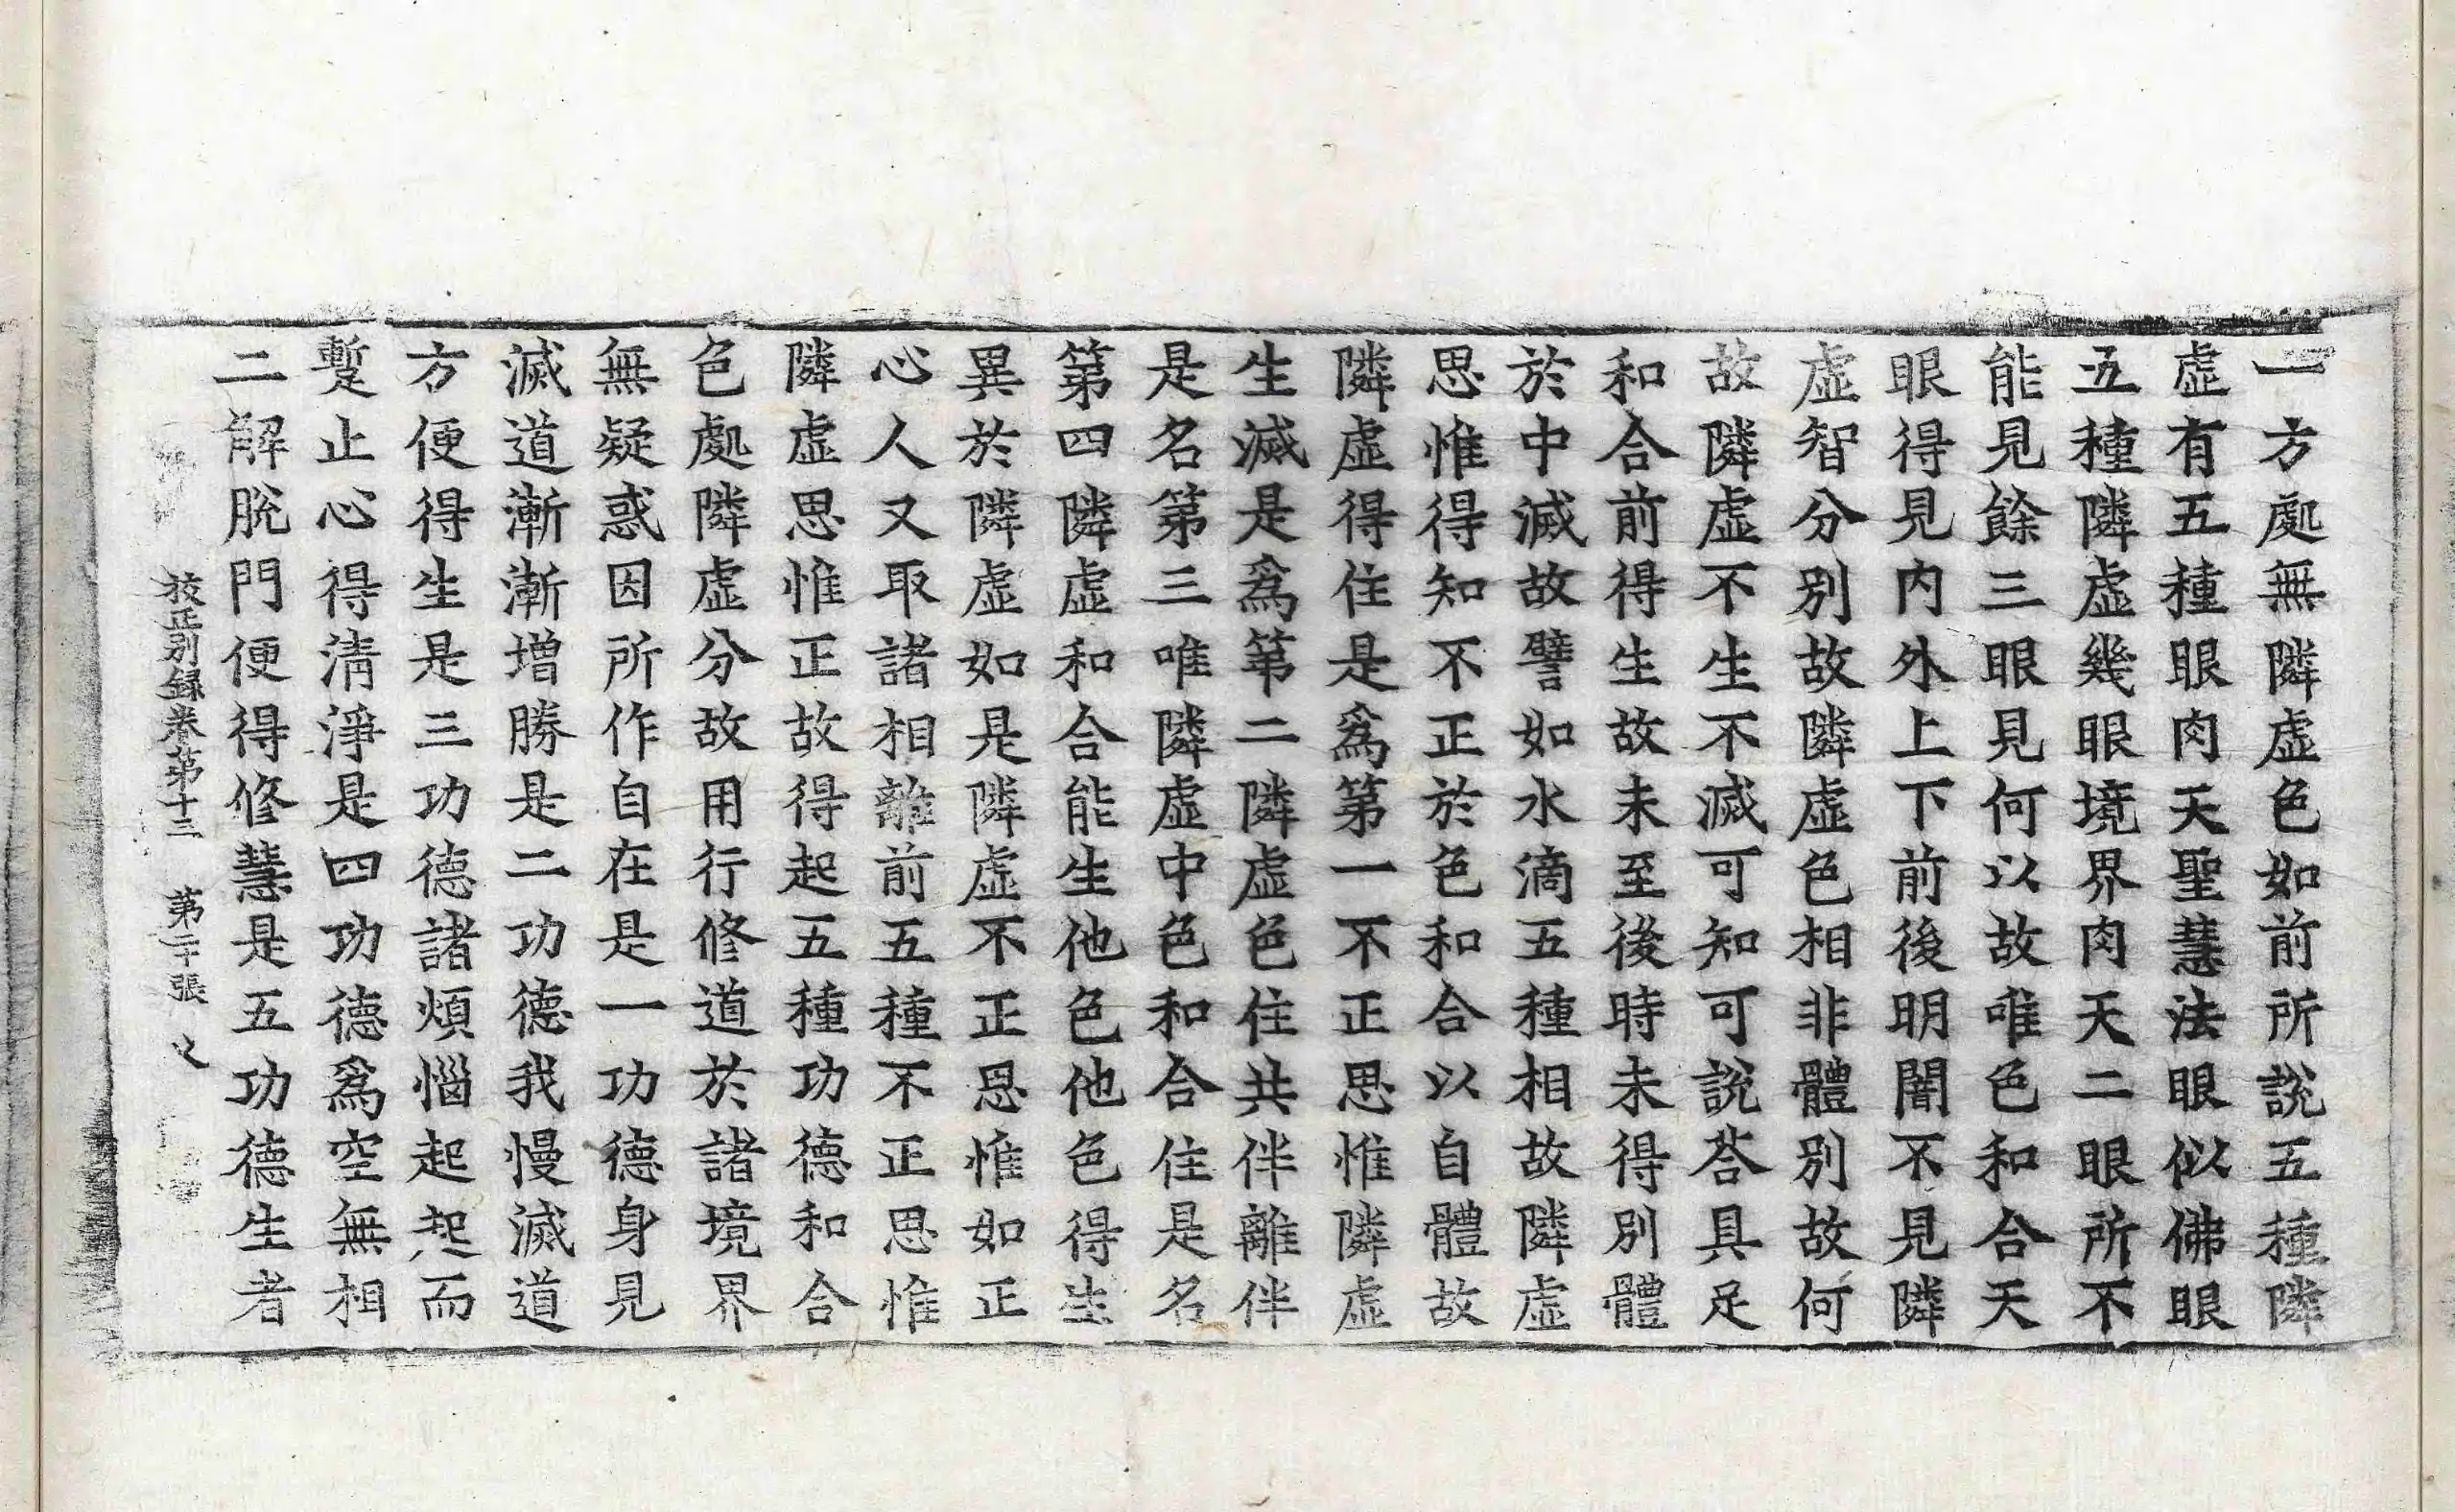 一方處無隣虛色如前所說五種隣
虛有五種眼肉天聖慧法眼似佛眼
五種隣虛幾眼境界肉天二眼所不
能見餘三眼見何以故唯色和合天
眼得見內外上下前後明闇不見隣
虛智分別故隣虛色相非體別故何
故隣虛不生不滅可知可說荅具足
和合前得生故未至後時未得別體
於中滅故譬如水滴五種相故隣虛
思惟得知不正於色和合以自體故
隣虛得住是爲第一不正思惟隣虛
生滅是爲第二隣虛色住共伴離伴
是名第三唯隣虛中色和合住是名
第四隣虛和合能生他色他色得生
異於隣虛如是隣虛不正思惟如正
心人又取諸相離前五種不正思惟
隣虛思惟正故得起五種功德和合
色處隣虛分故用行修道於諸境界
無疑惑因所作自在是一功德身見
滅道漸漸增勝是二功德我慢滅道
方便得生是三功德諸煩惱起起而
蹔止心得清淨是四功德爲空無相
二解脫門便得修慧是五功德生者
校正別録卷第十三 第二十張 乂